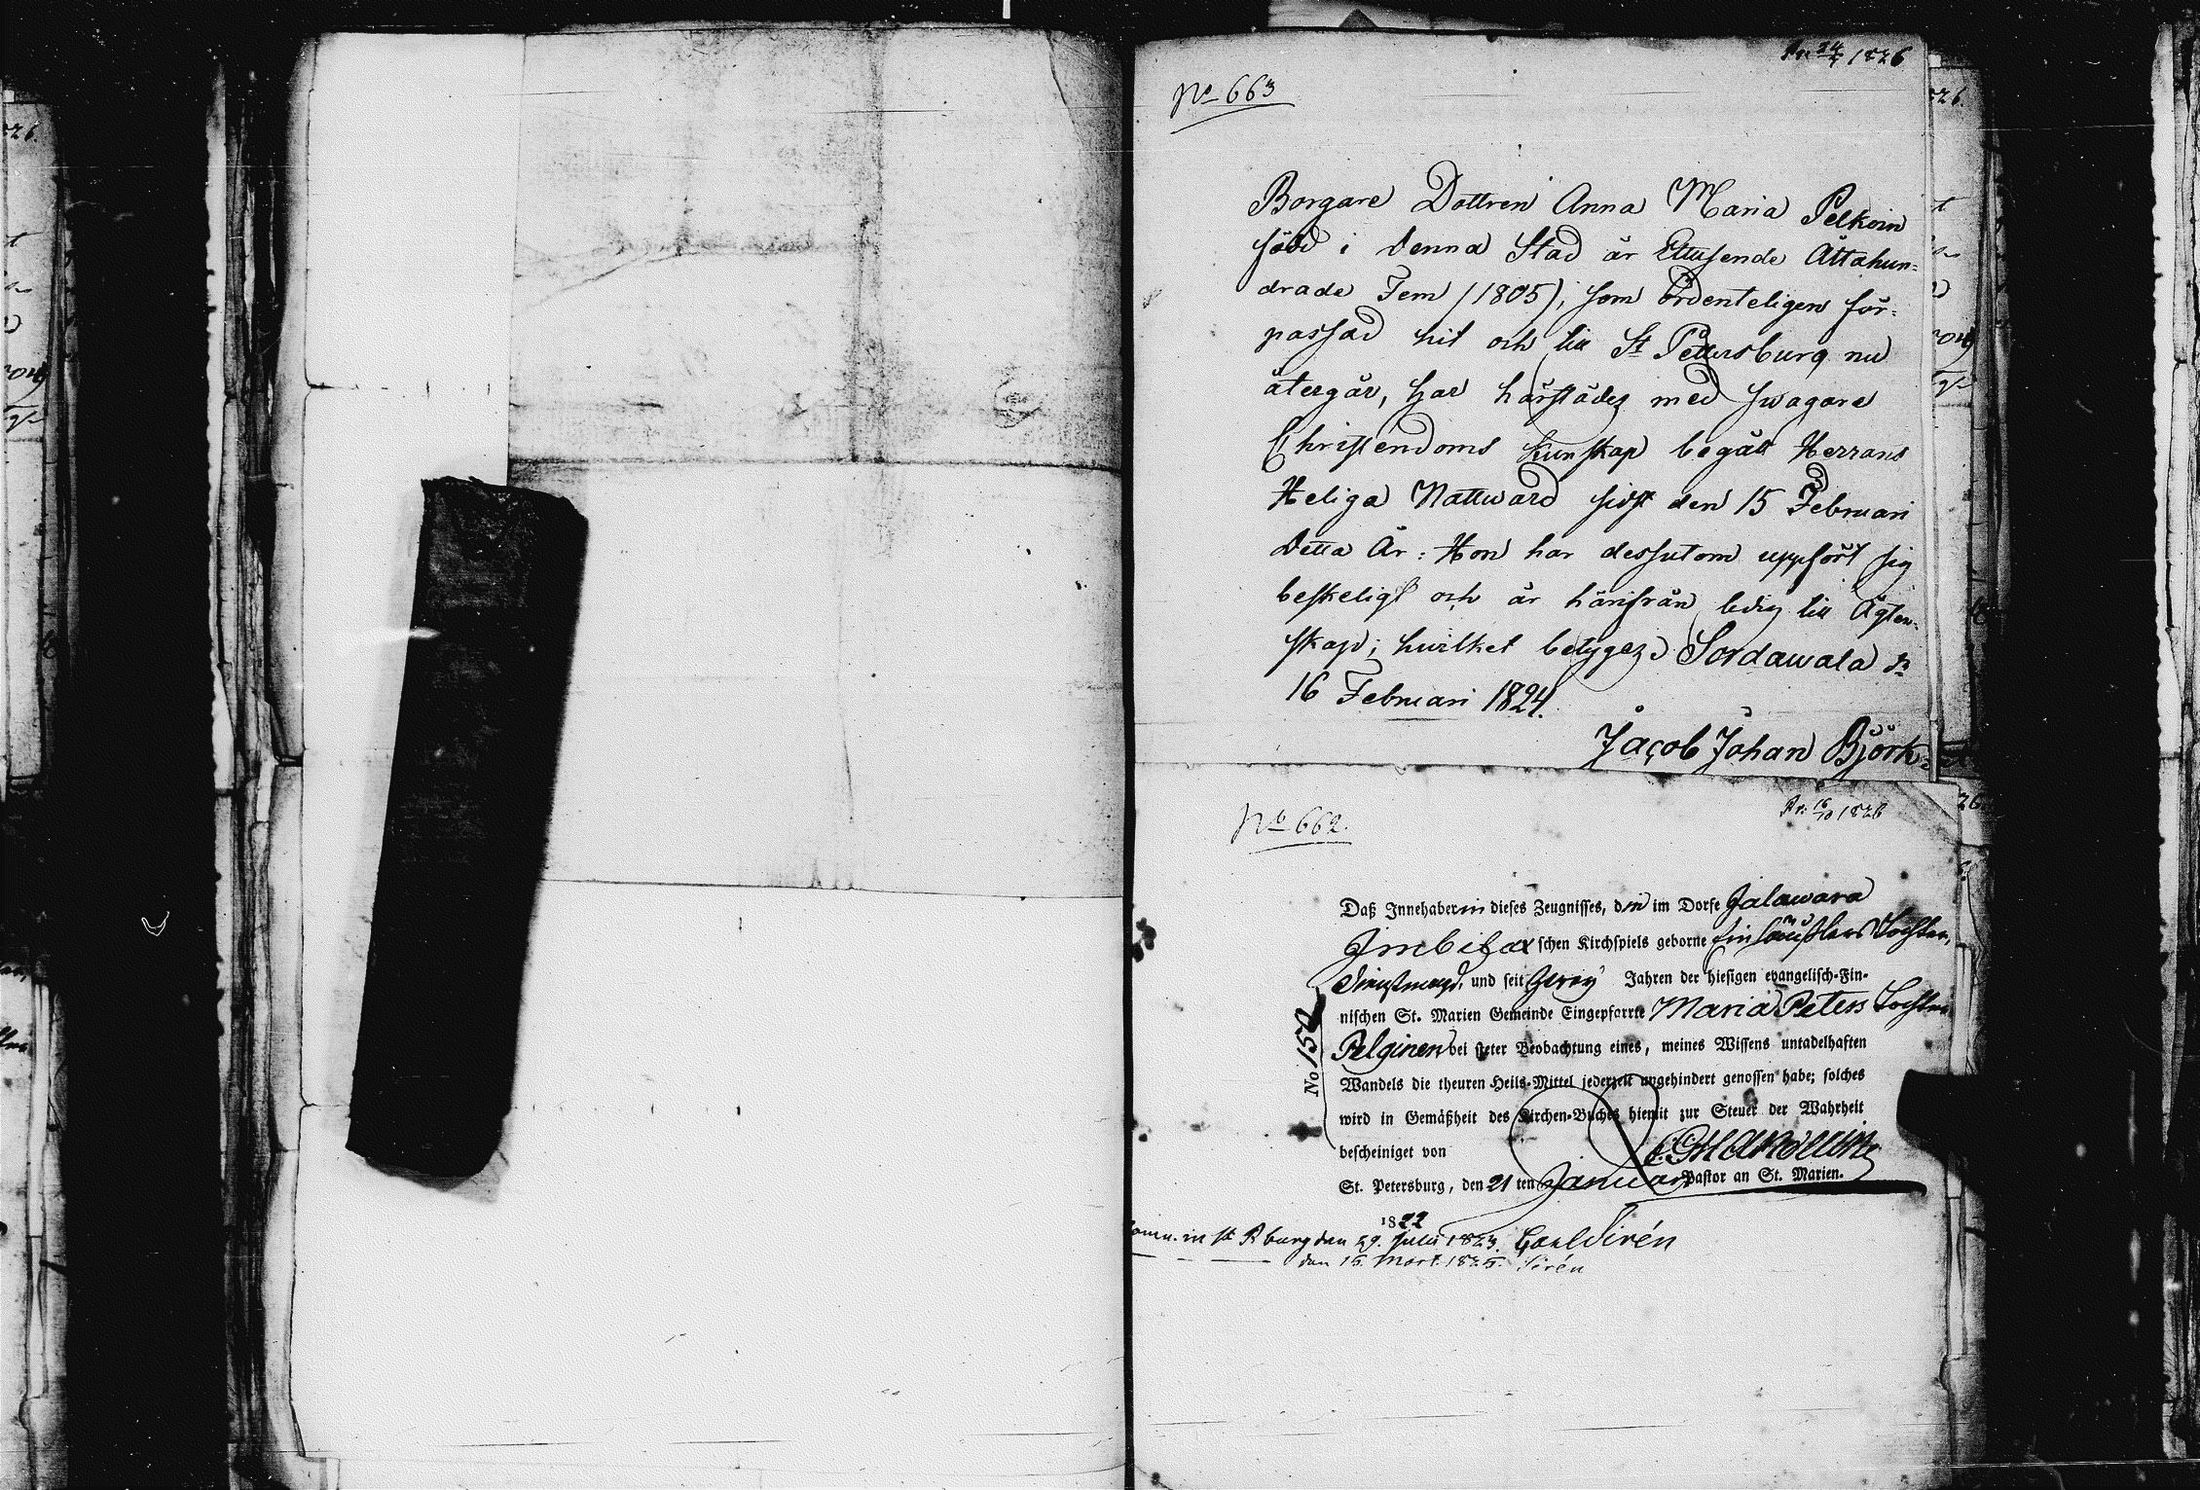 No 663
Pr. 24/4 1826
Borgare Dottren Anna Maria Pelkoin
född i denna Stad år Ettusende Åttahun=
drade Fem (1805); som ordenteligen för=
passad hit och till St Pettersburg nu
återgår, har härstädes med swagare
Christendoms kunskap begått Herrans
Heliga Nattward sidst den 15 Februari
detta År: Hon har dessutom uppfört sig
beskeligt och är härifrån ledig till Ägten=
skap; hwilket betygas. Sordawala d.
16 Februari 1824.
Jacob Johan Björk
No 662.
Pr. 16/10 1826
No 152
Daß Innehaberin dieses Zeugnisses, d in im Dorfe Jalawara
Imbilax schen Kirchspiels geborne Einhäußlers Tochter,
Dienstmagd, und seit zwey Jahren der hiesigen evangelisch-Fin-
nischen St. Marien Gemeinde Eingepfarrte Maria Peters Tochter
Pelginen bei steter Beobachtung eines, meines Wissens untadelhaften
Wandels die theuren Heils-Mittel jederzeit ungehindert genossen habe; solches
wird in Gemäßheit des Kirchen-Buches hiemit zur Steuer der Wahrheit
bescheiniget von
St. Petersburg, den 21 ten Januar Pastor an St. Marien.
1822
Comm. in St P burg den 29. Julii 1823. Carl Sirén
den 15. Mart. 1825. Sirén